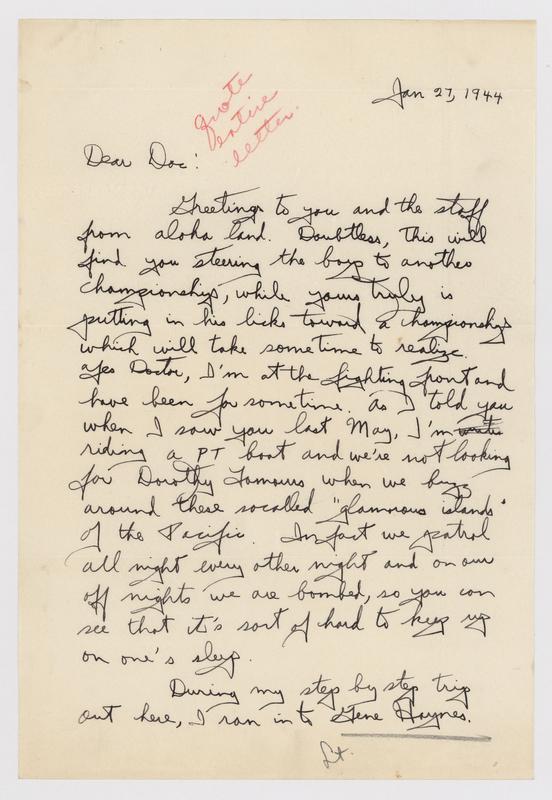 Jan 27, 1944
quote
entire
letter.
Dear Doc:
Greetings to you and the staff
from aloha land. Doubtless, this will
find you steering the boys to another
championship, while yours truly is
putting in his licks toward a championship
which will take sometime to realize.
Yes Doctor, I'm at the fighting front and
have been for sometime. As I told you
when I saw you last May, I'm
riding a PT boat and we're not looking
for Dorothy Lamours when we buzz
around these socalled "glamrous islands"
of the Pacific. In fact we patrol
all night every other night and on our
off nights we are bombed, so you can
see that it's sort of hard to keep up
on one's sleep.
During my step by step trip
out here, I ran in to Gene Haynes.
Lt.